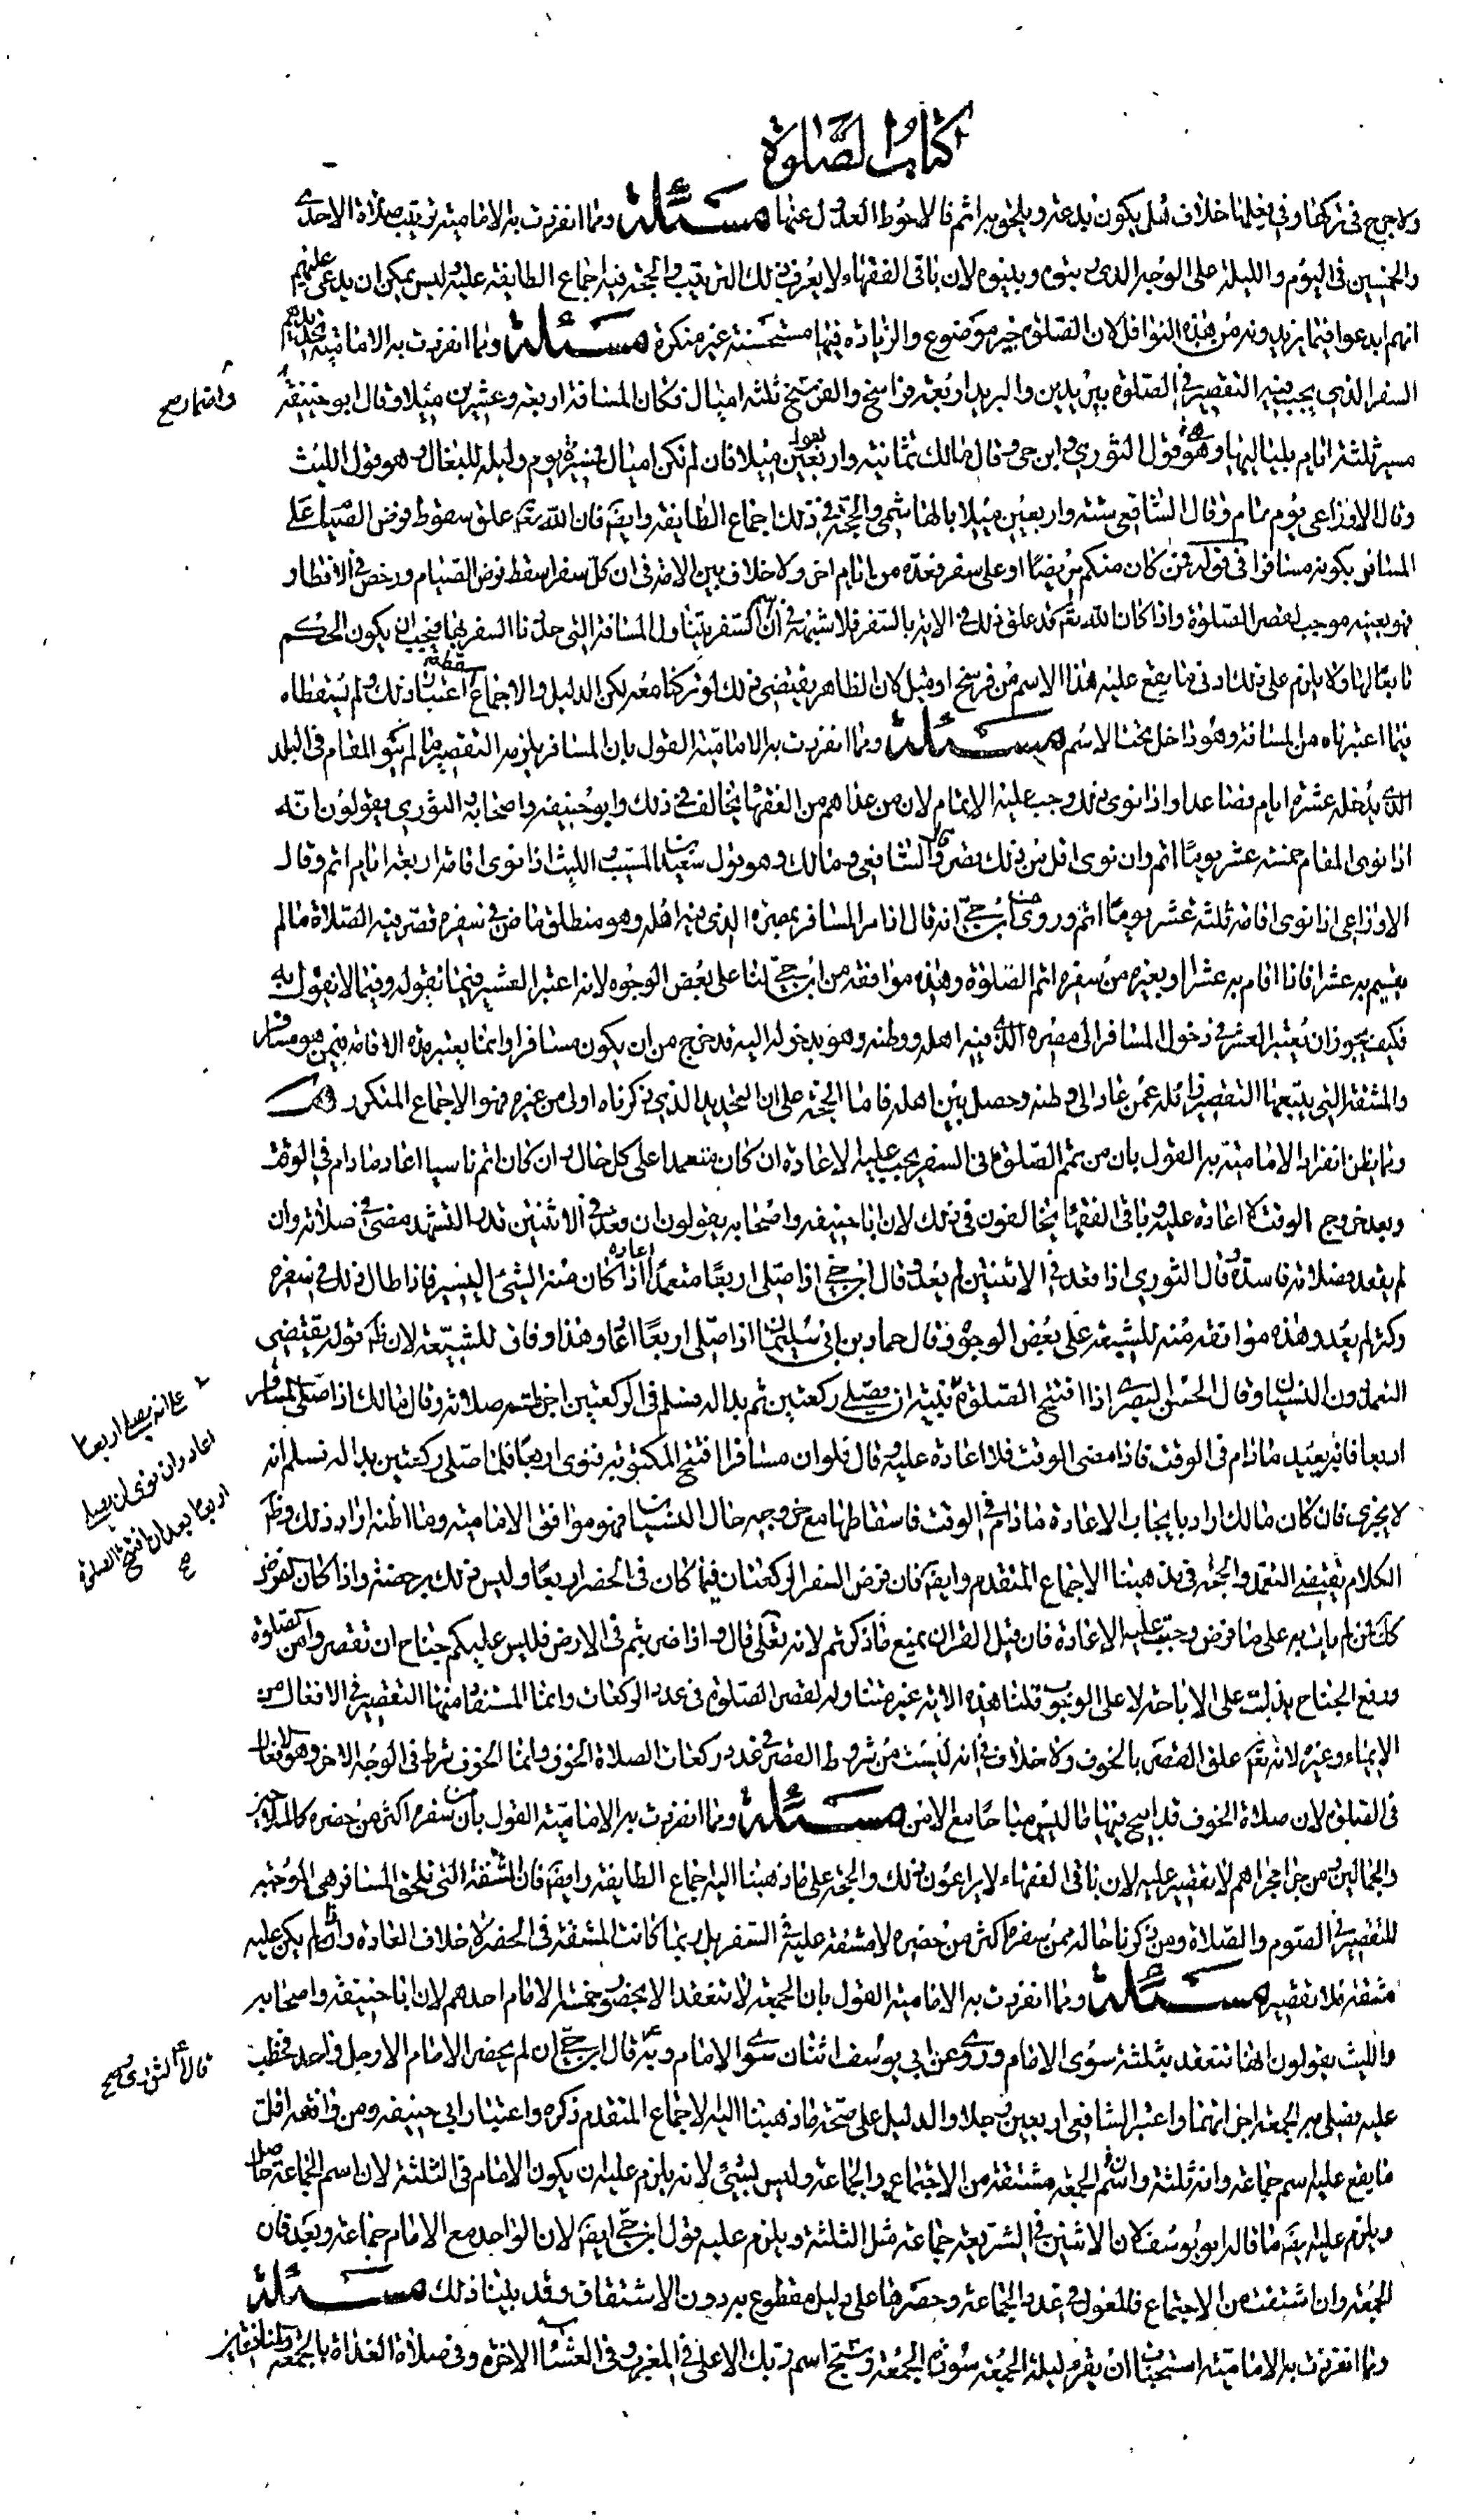 كتاب الصلوة
ولا حرج في تركها وفي فعلها خلاف هل يكون بدعة ويلحق به اثم فالاحوط العدول عنها مسئلة ومما انفردت به الامامية ترتيب صلاة الاحدى
والخمسين في اليوم والليلة على الوجه الذي بينوه لان باقي الفقهاء لا يعرف ذلك الترتيب والحجة فيه اجماع الطايفة عليه وليس يمكن ان يدعى عليهم
انهم ابدعوا فيما يزيدونه من هذه النوافل لان الصلوة خير موضوع والزيادة فيها مستحسنة غير منكرة مسئلة ومما انفردت به الامامية تحديدهم
السفر الذي يجب فيه التقصير في الصلوة ببريدين والبريد اربعة فراسخ والفرسخ ثلثة اميال فكان المسافة اربعة وعشرين ميلا وقال ابو حنيفة
واصحابه صح
مسيرة ثلثة ايام بلياليها وهو قول الثوري وابن حي وقال مالك ثمانية واربعين ميلا فان لم تكن اميال فمسيرة يوم وليلة للبغال وهو قول الليث
وقال الاوزاعي يوم تام وقال الشافعي ستة واربعين ميلا بالهاشمي والحجة في ذلك اجماع الطايفة وايضا فان الله تعالى علق سقوط فرض الصيام على
المسافر بكونه مسافرا في قوله فمن كان منكم مريضا او على سفر فعدة من ايام اخر ولا خلاف بين الامة في ان كل سفر اسقط فرض الصيام ورخص في الافطار
فهو بعينه موجب لقصر الصلوة واذا كان الله تعالى قد علق ذلك في الاية بالسفر فلا شبهة في ان اسم السفر يتناول المسافة التي حددنا السفر بها فيجب ان يكون الحكم
تابعا لها ولا يلزم على ذلك ادنى ما يقع عليه هذا الاسم من فرسخ او ميل لان الظاهر يقتضي ذلك لو تركنا معه لكن الدليل والاجماع اسقطا اعتبار ذلك ولم يسقطاه
فيما اعتبرناه من المسافة وهو داخل تحت الاسم مسئلة ومما انفردت به الامامية القول بان المسافر يلزمه التقصير ما لم ينو المقام في البلد
الذي يدخله عشرة ايام فصاعدا واذا نوى ذلك وجب عليه الاتمام لان من عداهم من الفقهاء يخالف في ذلك وابو حنيفة واصحابه والثوري يقولون انه
اذا نوى المقام خمسة عشر يوما اتم وان نوى اقل من ذلك قصر وقال الشافعي ومالك وهو قول سعيد بن المسيب والليث اذا نوى اقامة اربعة ايام اتم وقال
الاوزاعي اذا نوى اقامة ثلثة عشر يوما اتم وروى عن ابن حي انه قال اذا مر المسافر بمصره الذي فيه اهله وهو منطلق ماض في سفره قصر فيه الصلاة ما لم
يقيم به عشرا فاذا اقام به عشرا او بغيره من سفره اتم الصلوة وهذه موافقة من ابن حي لنا على بعض الوجوه لانه اعتبر العشر فيما نقوله وفيما لا نقول به
فكيف يجوز ان يعتبر العشر في دخول المسافر الى مصره الذي فيه اهله ووطنه وهو بدخوله اليه قد خرج من ان يكون مسافرا وانما يعتبر مدة الاقامة فيمن هو مسافر
والمشقة التي يتبعها التقصير زائلة عمن عاد الى وطنه وحصل بين اهله فاما الحجة على ان التحديد الذي ذكرناه اولى من غيره فهو الاجماع المتكرر
ومما يظن انفراد الامامية به القول بان من تمم الصلوة في السفر يجب عليه الاعادة ان كان متعمدا على كل حال وان كان اتم ناسيا اعاد ما دام في الوقت
وبعد خروج الوقت لا اعادة عليه وباقي الفقهاء يخالفون في ذلك لان ابا حنيفة واصحابه يقولون ان قعد في الاثنتين قدر التشهد مضى في صلاته وان
لم يقعد فصلاته فاسدة وقال الثوري اذا قعد في الاثنتين لم يعد وقال ابن حي اذا صلى اربعا متعمدا اعاده اذا كان منه الشيء اليسير فاذا طال ذلك في سفره
وكثر لم يعد وهذه موافقة منه للشيعة على بعض الوجوه وقال حماد بن ابي سليمان اذا صلى اربعا اعاد وهذا وفاق للشيعة لان ظاهر قوله يقتضي
التعمد دون النسيان وقال الحسن البصري اذا افتتح الصلوة بنية ان يصلي ركعتين ثم بدا له فسلم في الركعتين اجزأته صلاته وقال مالك اذا صلى المسافر
على انه يصلي اربعا
اعاد وان نوى ان يصلي
اربعا بعد ان افتتح الصلوة
صح
اربعا فانه يعيد ما دام في الوقت فاذا مضى الوقت فلا اعادة عليه وقال فلو ان مسافرا افتتح المكتوبة فنوى اربعا فلما صلى ركعتين بدا له فسلم انه
لا يجزي فان كان مالك اراد بايجاب الاعادة ما دام في الوقت فاسقاطها مع خروجه حال النسيان فهو موافق الامامية وما اظنه اراد ذلك وظاهر
الكلام يقتضي التعمد والحجة في مذهبنا الاجماع المتقدم وايضا فان فرض السفر الركعتان فيما كان في الحضر اربعا وليس ذلك برخصة واذا كان الفرض
كذلك فمن لم يات به على ما فرض وجب عليه الاعادة فان قيل القران يمنع ما ذكرتم لانه تعالى قال واذا ضربتم في الارض فليس عليكم جناح ان تقصروا من الصلوة
ورفع الجناح يدل على الاباحة لا على الوجوب قلنا هذه الاية غير متناولة لقصر الصلوة في عدد الركعات وانما المستفاد منها التقصير في الافعال من
الايماء وغيره لانه تعالى علق القصر بالخوف ولا خلاف في انه ليست من شروط القصر في عدد ركعات الصلاة الخوف وانما الخوف شرط في الوجه الاخر وهو الافعال
في الصلوة لان صلاة الخوف قد ابيح فيها ما ليس مباحا مع الامن مسئلة ومما انفردت به الامامية القول بان من سفره اكثر من حضره كالملاحين
والجمالين ومن جرى مجراهم لا تقصير عليه لان باقي الفقهاء لا يراعون ذلك والحجة على ما ذهبنا اليه اجماع الطايفة وايضا فان المشقة التي تلحق المسافر هي الموجبة
للتقصير في الصوم والصلاة ومن ذكرنا حاله ممن سفره اكثر من حضره لا مشقة عليه في السفر بل ربما كانت المشقة في الحضر لانه خلاف العادة واذا لم يكن عليه
مشقة فلا تقصير مسئلة ومما انفردت به الامامية القول بان الجمعة لا تنعقد الا بحضور خمسة الامام احدهم لان ابا حنيفة واصحابه
والليث يقولون انها تنعقد بثلثة سوى الامام وروى عن ابي يوسف اثنان سوى الامام وبه قال ابن حي ان لم يحضر الامام الا رجل واحد فخطب
قال الثوري صح
عليه وصلى به الجمعة اجزاتهما واعتبر الشافعي اربعين رجلا والدليل على صحة ما ذهبنا اليه الاجماع المتقدم ذكره واعتبار ابي حنيفة ومن وافقه اقل
ما يقع عليه اسم جماعة وانه ثلثة وان اسم الجمعة مشتقة من الاجتماع والجماعة وليس بشيء لانه يلزم عليه ان يكون الامام في الثلثة لان اسم الجماعة حاصل
ويلزم عليه ايضا ما قاله ابو يوسف لان الاثنين في الشريعة جماعة مثل الثلثة ويلزم عليه قول ابن حي ايضا لان الواحد مع الامام جماعة وبعد فان
الجمعة وان اشتقت من الاجتماع فالمعول في عدد الجماعة وحصرها على دليل مقطوع به دون الاشتقاق وقد بينا ذلك مسئلة
ومما انفردت به الامامية استحباب ان يقرء ليلة الجمعة سورة الجمعة وسبح اسم ربك الاعلى في المغرب وفي العشاء الاخرة وفي صلاة الغداة بالجمعة والمنافقين